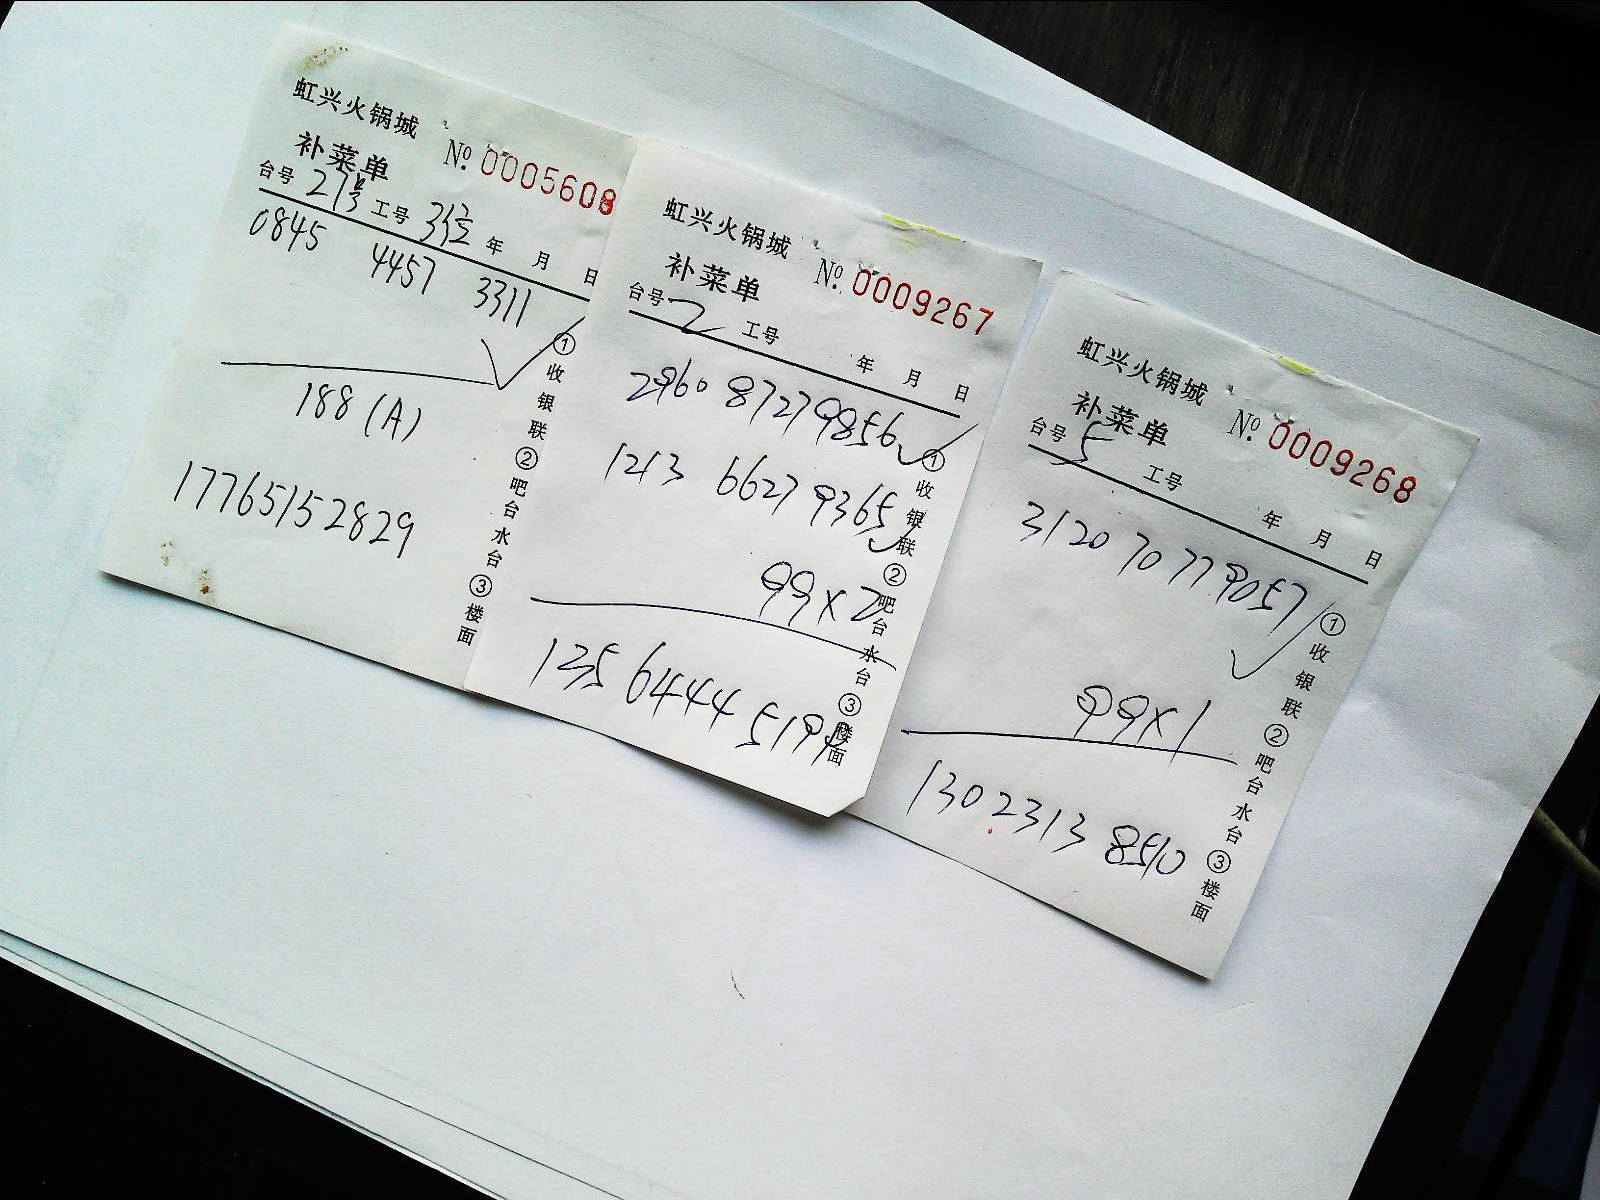 虹兴火锅城
补菜单 № 0005608
台号 27号 工号 3位 年 月 日
0845 4457 3311
188 (A)
17765152829
①收银联②吧台水台③楼面
虹兴火锅城
补菜单 № 0009267
台号 2 工号 年 月 日
2960 87279856
1213 66279365
99×2
135 6444 5194
①收银联②吧台水台③楼面
虹兴火锅城
补菜单 № 0009268
台号 5 工号 年 月 日
3120 70779057
99×1
130 2313 8510
①收银联②吧台水台③楼面